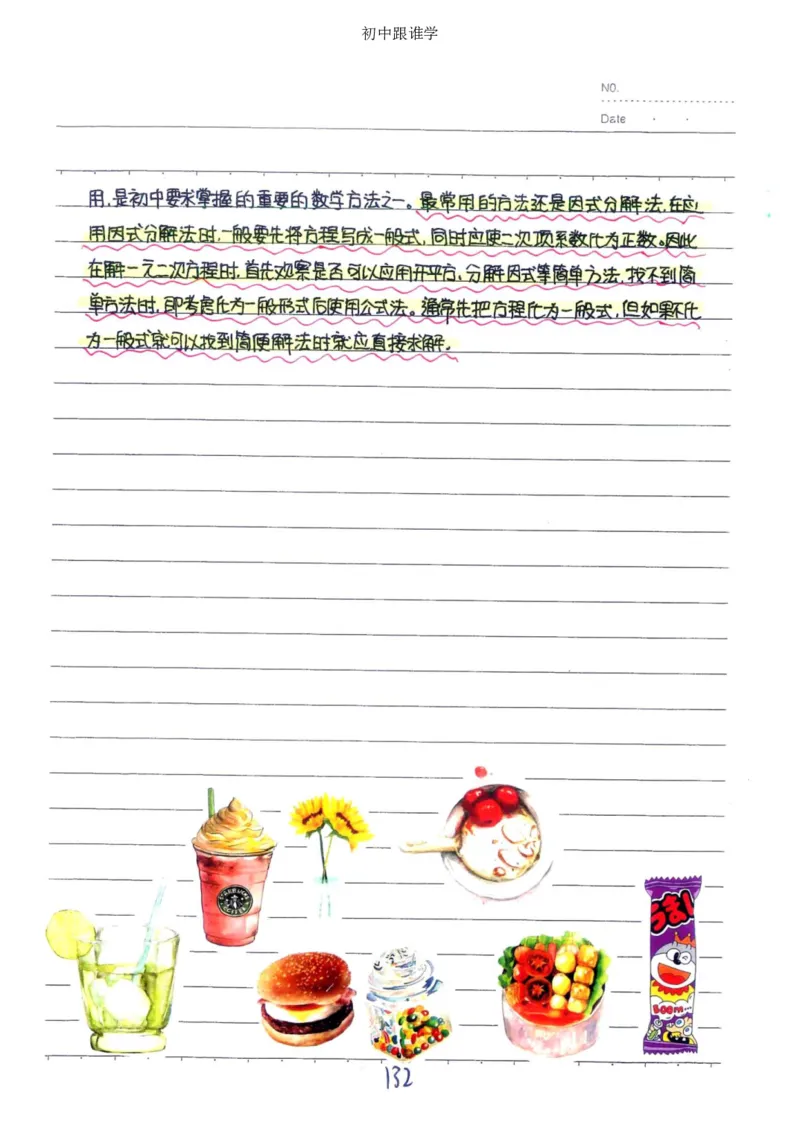 初中跟谁学
NO.
Date
用,是初中要求掌握的重要的数学方法之一。最常用的方法还是因式分解法,在应
用因式分解法时,一般要先将方程写成一般式,同时应使二次项系数化为正数。因此
在解一元二次方程时,首先观察是否可以应用开平方、分解因式等简单方法,找不到简
单方法时,即考虑化为一般形式后使用公式法。通常先把方程化为一般式,但如果不化
为一般式就可以找到简便解法时就应直接求解.
STARBUCKS
COFFEE
うまい
BOOM
132